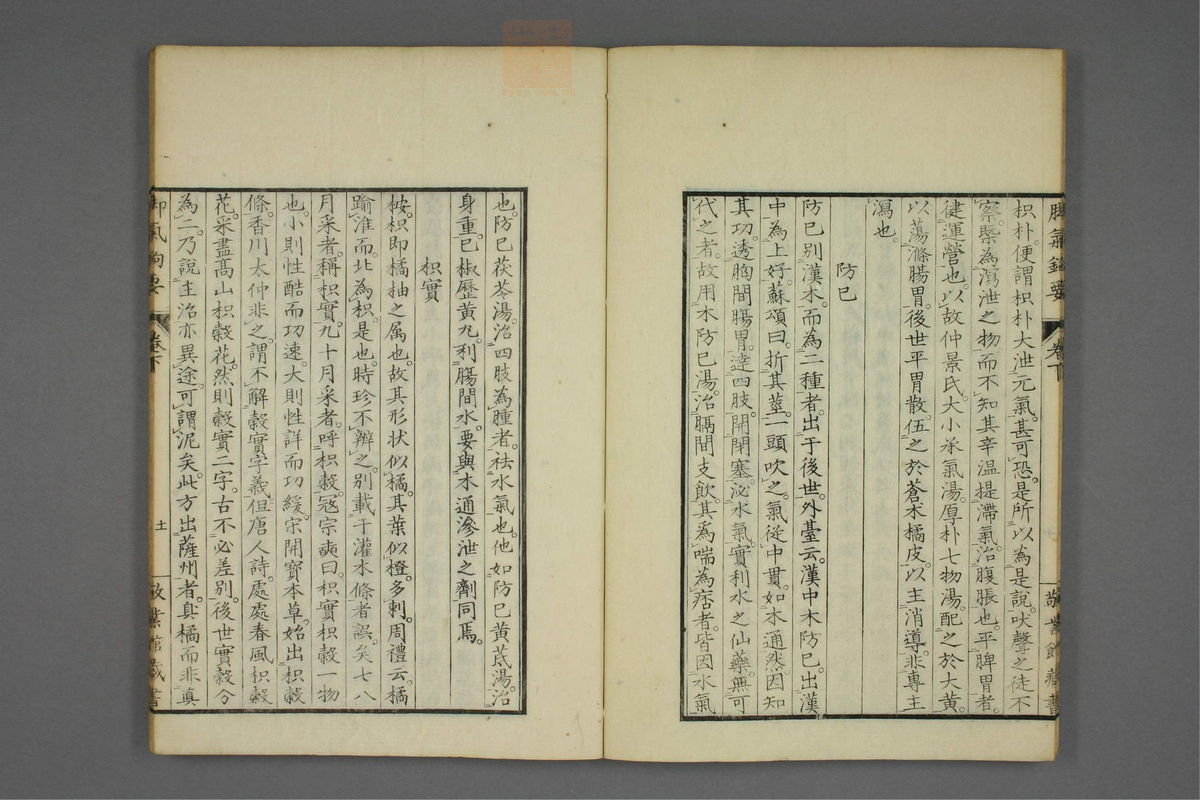 脚氣鉤要　卷下　敬業館藏書
枳朴便謂枳朴大泄元氣甚可恐是所以為是說吠聲之徒不
察槩為瀉泄之物而不知其辛溫提滯氣治腹脹也平脾胃者
健運營也以故仲景氏大小承氣湯厚朴七物湯配之於大黃
以蕩滌腸胃後世平胃散伍之於蒼朮橘皮以主消導非專主
瀉也
防已
防已別漢木而為二種者出于後世外臺云漢中木防已出漢
中為上好蘇頌曰折其莖一頭吹之氣從中貫如木通然因知
其功透胸間腸胃達四肢開閉塞泌水氣實利水之仙藥無可
代之者故用木防已湯治膈間支飲其為喘為痞者皆因水氣
也防已茯苓湯治四肢為腫者祛水氣也他如防已黃芪湯治
身重已椒歷黃丸利腸間水要與木通滲泄之劑同焉
枳實
按枳即橘柚之属也故其形状似橘其葉似橙多刺周禮云橘
踰淮而北為枳是也時珍不辨之別載于灌木條者誤矣七八
月采者稱枳實九十月采者呼枳殼冦宗奭曰枳實枳殼一物
也小則性酷而功速大則性詳而功緩宋開寶本草始出枳殼
條香川太仲非之謂不解殼實字義但唐人詩處處春風枳殼
花采盡高山枳殼花然則殼實二字古不必差別後世實殼分
為二乃說主治亦異途可謂泥矣此方出薩州者真橘而非真
脚氣鉤要　卷下　十一　敬業館藏書